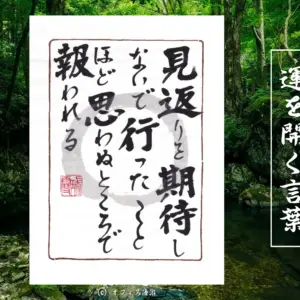 見返りを期待し
ないで行ったこと
ほど思わぬところで
報われる
運を開く言葉